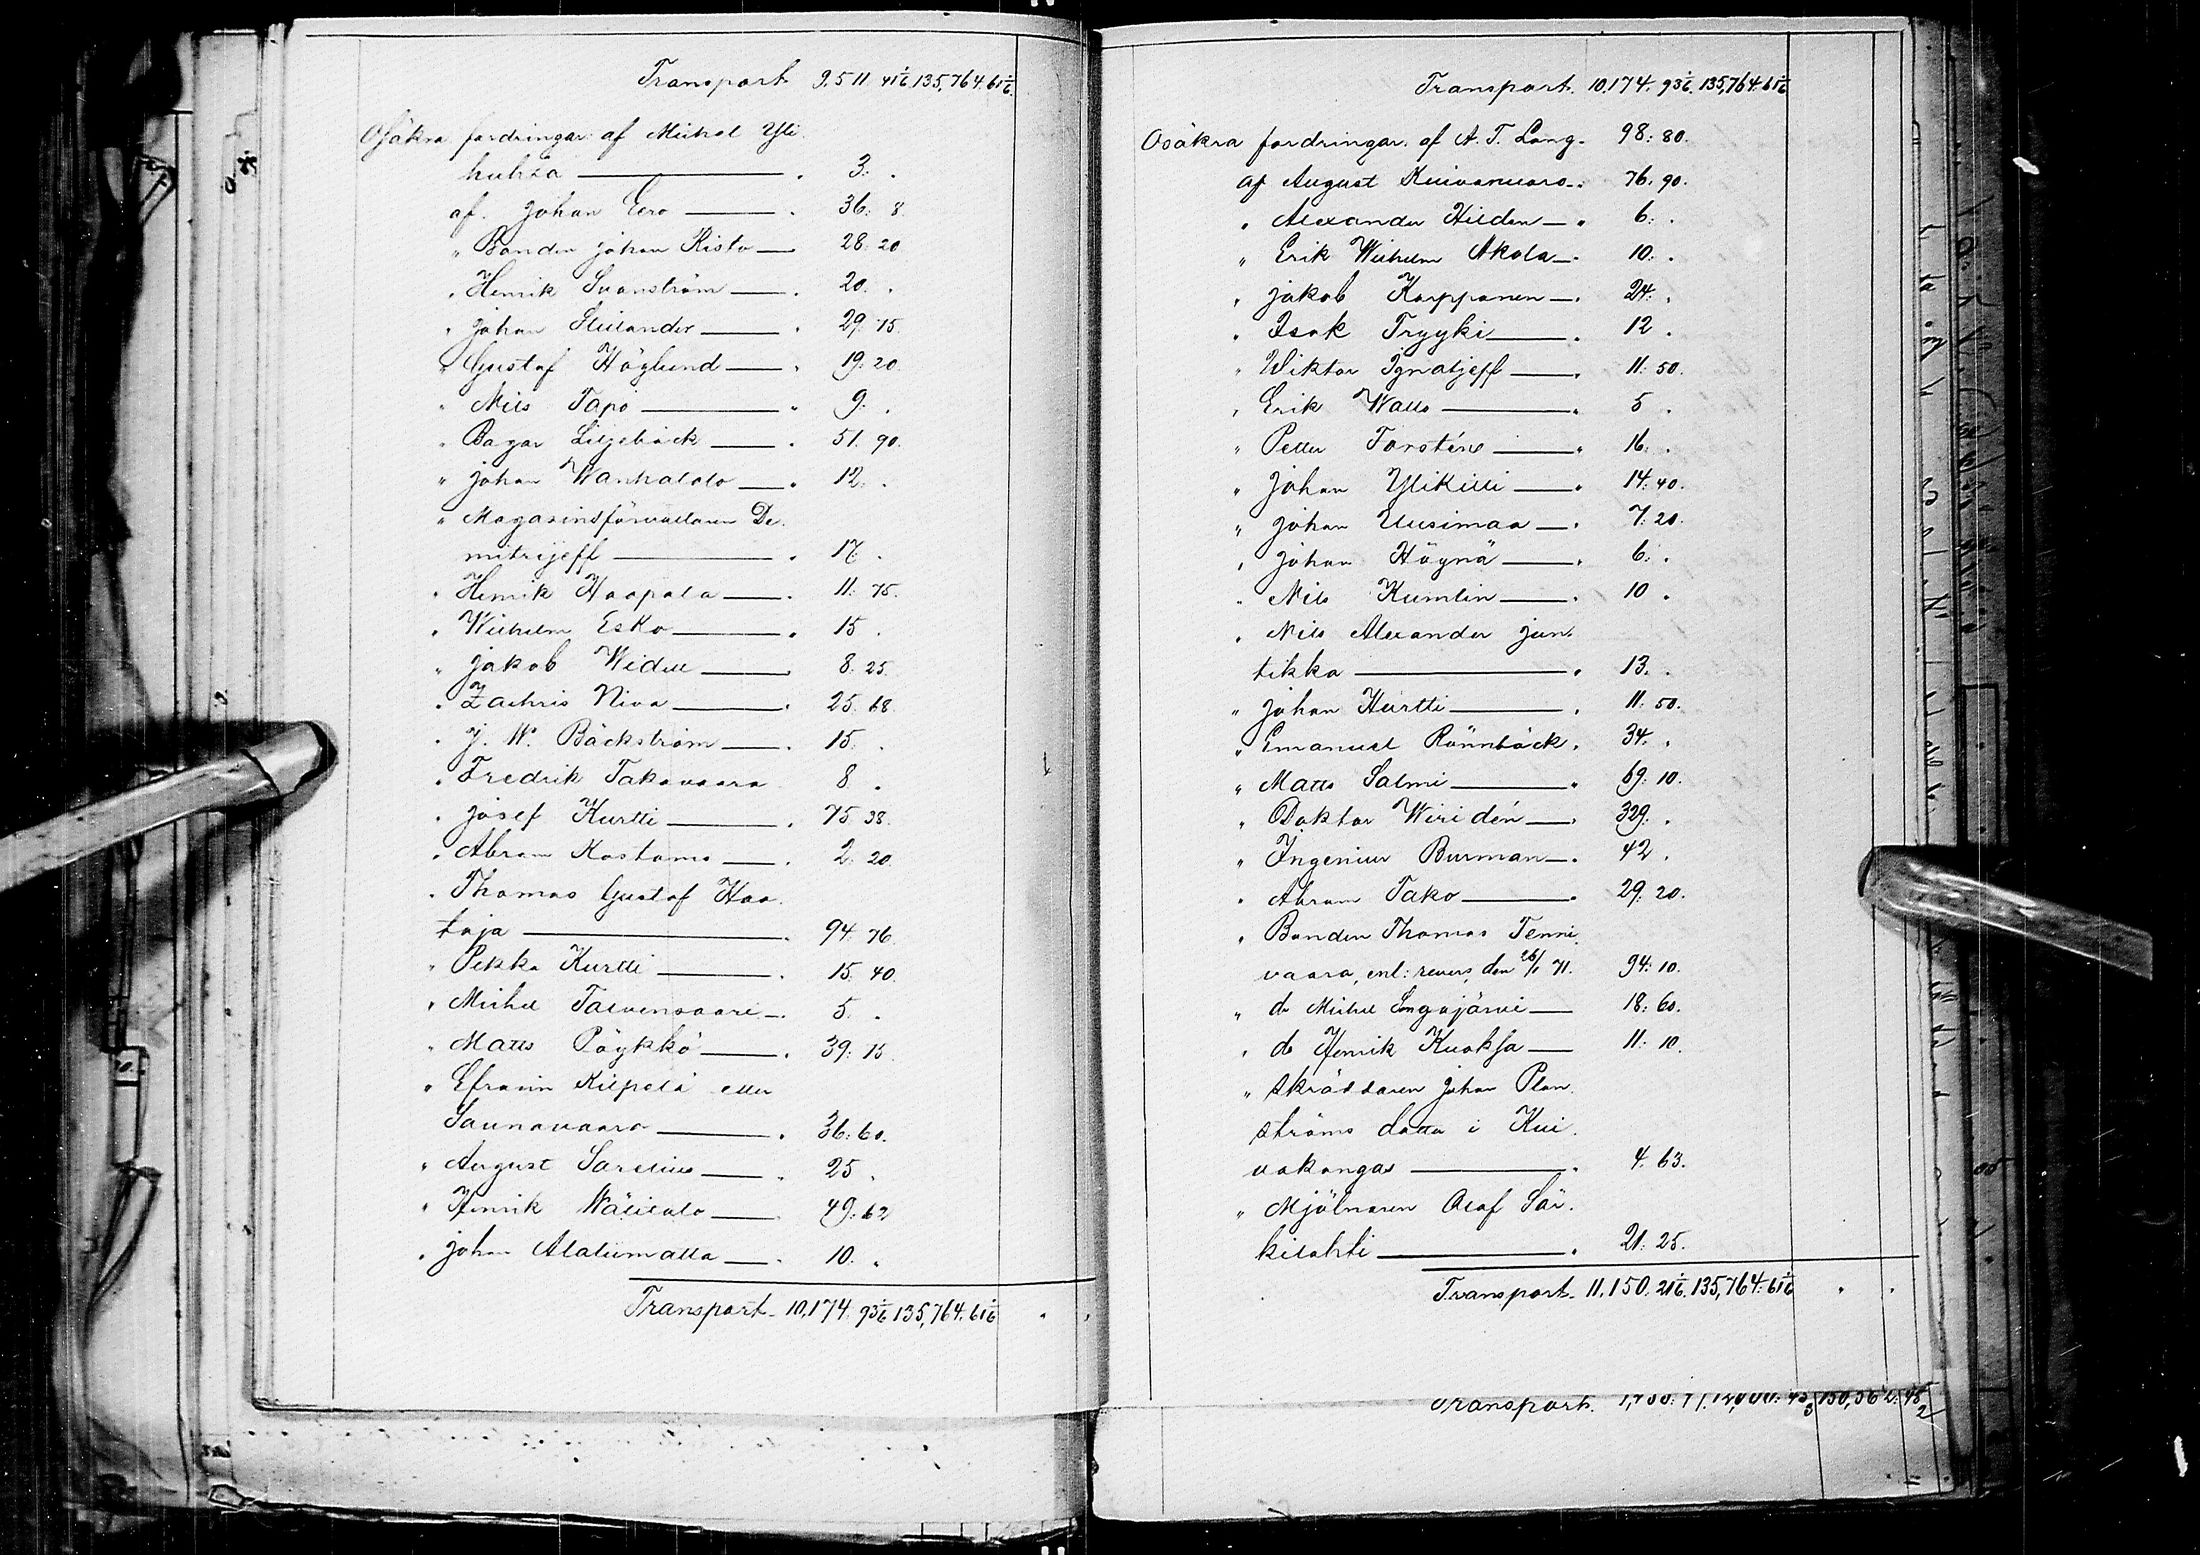 Transport 9,511. 41 1/6. 135,764. 61 1/6.
Osäkra fordringar af Michel Yli
huhta — 3. .
af. Johan Eero — . 36. 8.
" Bonden Johan Risto — 28. 20
" Henrik Svanström — . 20. .
" Johan Heilander — . 29. 75.
" Gustaf Höglund — . 19. 20.
" Nils Tapio — " 9. .
" Bagar Liljebäck — . 51. 90.
" Johan Wanhatalo — . 12. .
" Magasinsförvaltaren De
mitrijeff — . 17. .
" Henrik Haapala — . 11. 75.
" Wilhelm Esko — . 15 .
" Jakob Widell — 8. 25.
" Zachris Niva — . 25. 68.
" J. W. Bäckström — . 15. .
" Fredrik Takavaara 8 .
" Josef Kurtti — . 75. 38.
" Abram Kostamo — . 2. 20.
" Thomas Gustaf Haa
taja — . 94. 76.
" Pekka Kurtti — . 15. 40.
" Michel Talvensaari — . 5. .
" Matts Pöykkö — . 39. 75.
" Efraim Kilpelä eller
Saunavaara — . 36. 60.
" August Sarelius — . 25 .
" Henrik Wälitalo — 49. 62
" Johan Alalumatta — . 10. .
Transport 10,174. 93 1/6 135,764. 61 1/6 . .
Transport. 10,174. 93 1/6. 135,764. 61 1/6
Osäkra fordringar. af A. T. Lång. 98: 80.
af August Kuivanuoro . 76. 90.
" Alexander Hilden — . 6: .
" Erik Wilhelm Akola — . 10: .
" Jakob Karppanen — . 24: .
" Isak Tryyki — . 12 .
" Wiktor Ignatjeff — . 11: 50.
" Erik Walls — " 5 .
" Petter Torstén — . 16. .
" Johan Ylikitti — " 14: 40.
" Johan Uusimaa — . 7: 20.
" Johan Höynä — . 6: .
" Nils Kumlin — . 10 .
" Nils Alexander Jun
tikka — " 13. .
" Johan Hurtti — . 11. 50.
" Emanuel Rönnbäck . 34. .
" Matts Salmi — " 69: 10.
" Doktor Wiridén — . 329. .
" Ingeniur Burman — . 42 .
" Abram Tako — . 29. 20.
" Bonden Thomas Tenni
vaara, enl: revers den 26/1 71. 94: 10.
" do Michel Songajärvi — 18: 60.
" do Henrik Kuoksa — 11: 10.
" skräddaren Johan Plan
ströms dotter i Kui
vakangas — . 4. 63.
" Mjölnaren Olof Sär
kilahti — . 21: 25.
Transport. 11,150. 21 1/6. 135,764. 61 1/6 . .
Transport.